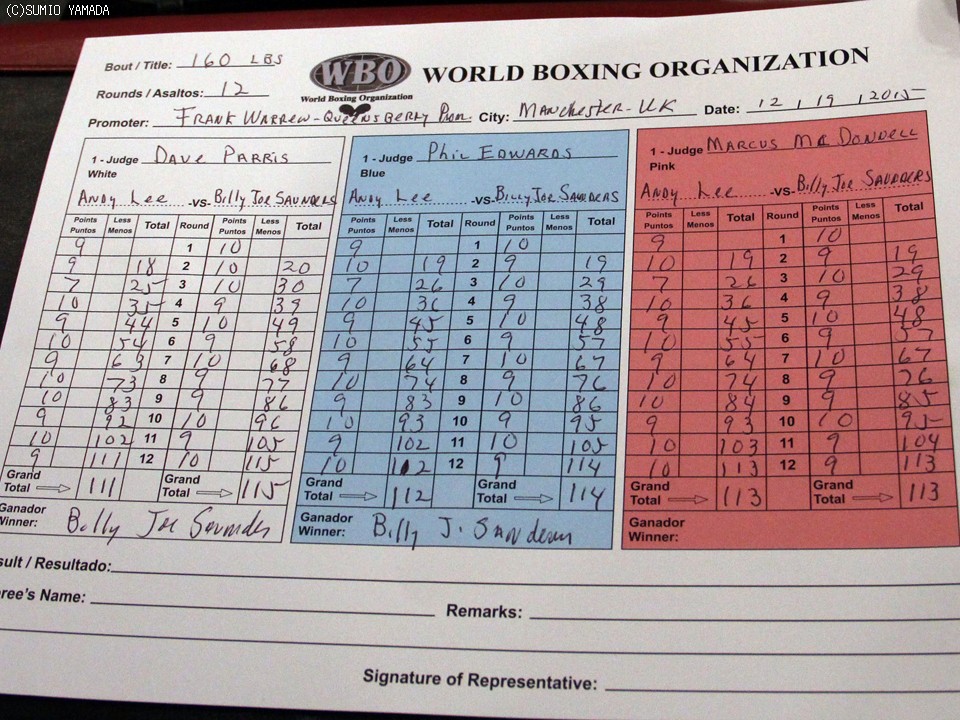 (C)SUMIO YAMADA
Bout / Title: 160 LBS
Rounds / Asaltos: 12
WBO
World Boxing Organization
WORLD BOXING ORGANIZATION
Promoter: FRANK WARREN - QUEENSBERRY Prom. City: MANCHESTER - UK Date: 12 / 19 / 2015
1 - Judge DAVE PARRIS
White
ANDY LEE -VS- BILLY JOE SAUNDERS
Points Puntos Less Menos Total Round Points Puntos Less Menos Total
9 1 10
9 18 2 10 20
7 25 3 10 30
10 35 4 9 39
9 44 5 10 49
10 54 6 9 58
9 63 7 10 68
10 73 8 9 77
10 83 9 9 86
9 92 10 10 96
10 102 11 9 105
9 111 12 10 115
Grand Total 111 Grand Total 115
Ganador
Winner: Billy Joe Saunders
1 - Judge PHIL EDWARDS
Blue
ANDY LEE -VS- BILLY JOE SAUNDERS
Points Puntos Less Menos Total Round Points Puntos Less Menos Total
9 1 10
10 19 2 9 19
7 26 3 10 29
10 36 4 9 38
9 45 5 10 48
10 55 6 9 57
9 64 7 10 67
10 74 8 9 76
9 83 9 10 86
10 93 10 9 95
9 102 11 10 105
10 112 12 9 114
Grand Total 112 Grand Total 114
Ganador
Winner: Billy J. Saunders
1 - Judge MARCUS MC DONNELL
Pink
ANDY LEE -VS- Billy JOE SAUNDERS
Points Puntos Less Menos Total Round Points Puntos Less Menos Total
9 1 10
10 19 2 9 19
7 26 3 10 29
10 36 4 9 38
9 45 5 10 48
10 55 6 9 57
9 64 7 10 67
10 74 8 9 76
10 84 9 9 85
9 93 10 10 95
10 103 11 9 104
10 113 12 9 113
Grand Total 113 Grand Total 113
Ganador
Winner:
sult / Resultado:
eree's Name: Remarks:
Signature of Representative: